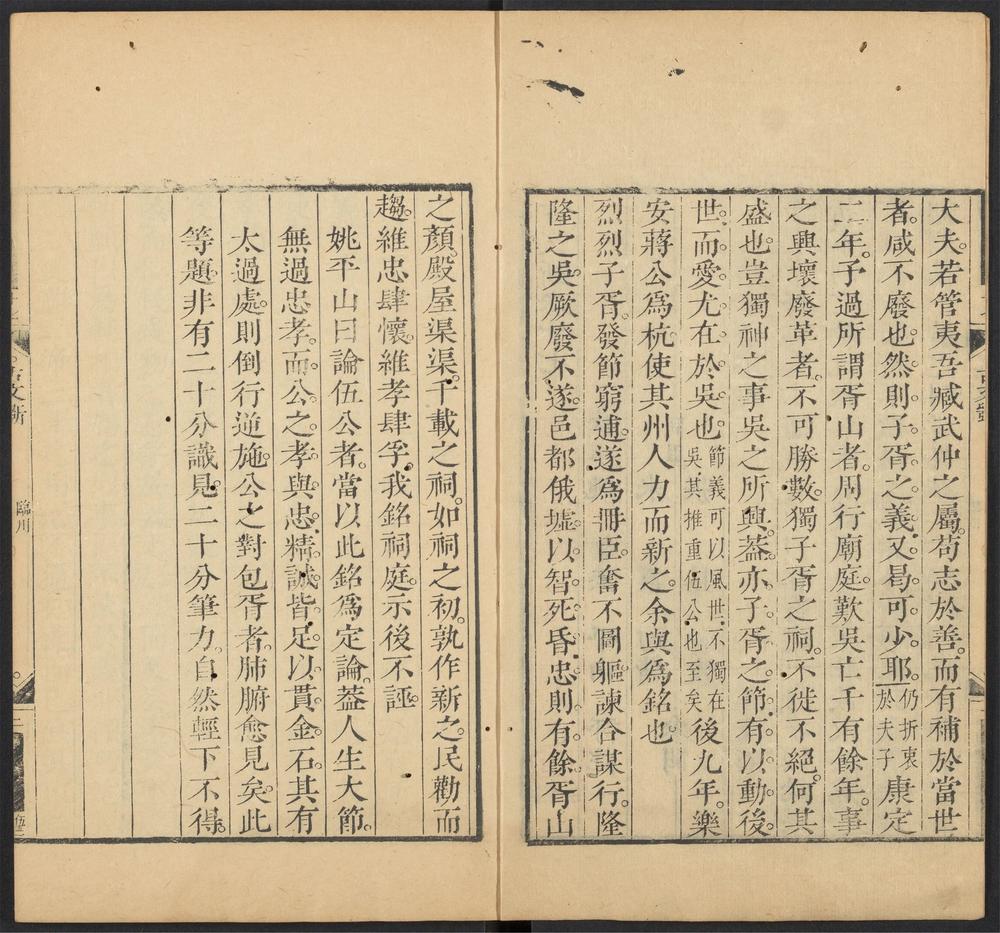 大夫若管夷吾臧武仲之屬苟志於善而有補於當世
者咸不廢也然則子胥之義又曷可少耶仍折衷於夫子康定
二年予過所謂胥山者周行廟庭歎吳亡千有餘年事
之興壞廢革者不可勝數獨子胥之祠不徙不絕何其
盛也豈獨神之事吳之所興葢亦子胥之節有以動後
世而愛尤在於吳也節義可以風世不獨在吳其推重伍公也至矣後九年樂
安蔣公爲杭使其州人力而新之余與爲銘也
烈烈子胥發節窮逋遂爲冊臣奮不圖軀諫合謀行隆
隆之吳厥廢不遂邑都俄墟以智死昏忠則有餘胥山
之顏殿屋渠渠千載之祠如祠之初孰作新之民勸而
趨維忠肆懷維孝肆孚我銘祠庭示後不誣
姚平山曰論伍公者當以此銘爲定論葢人生大節
無過忠孝而公之孝與忠精誠皆足以貫金石其有
太過處則倒行逆施公之對包胥者肺腑愈見矣此
等題非有二十分識見二十分筆力自然輕下不得
臨川